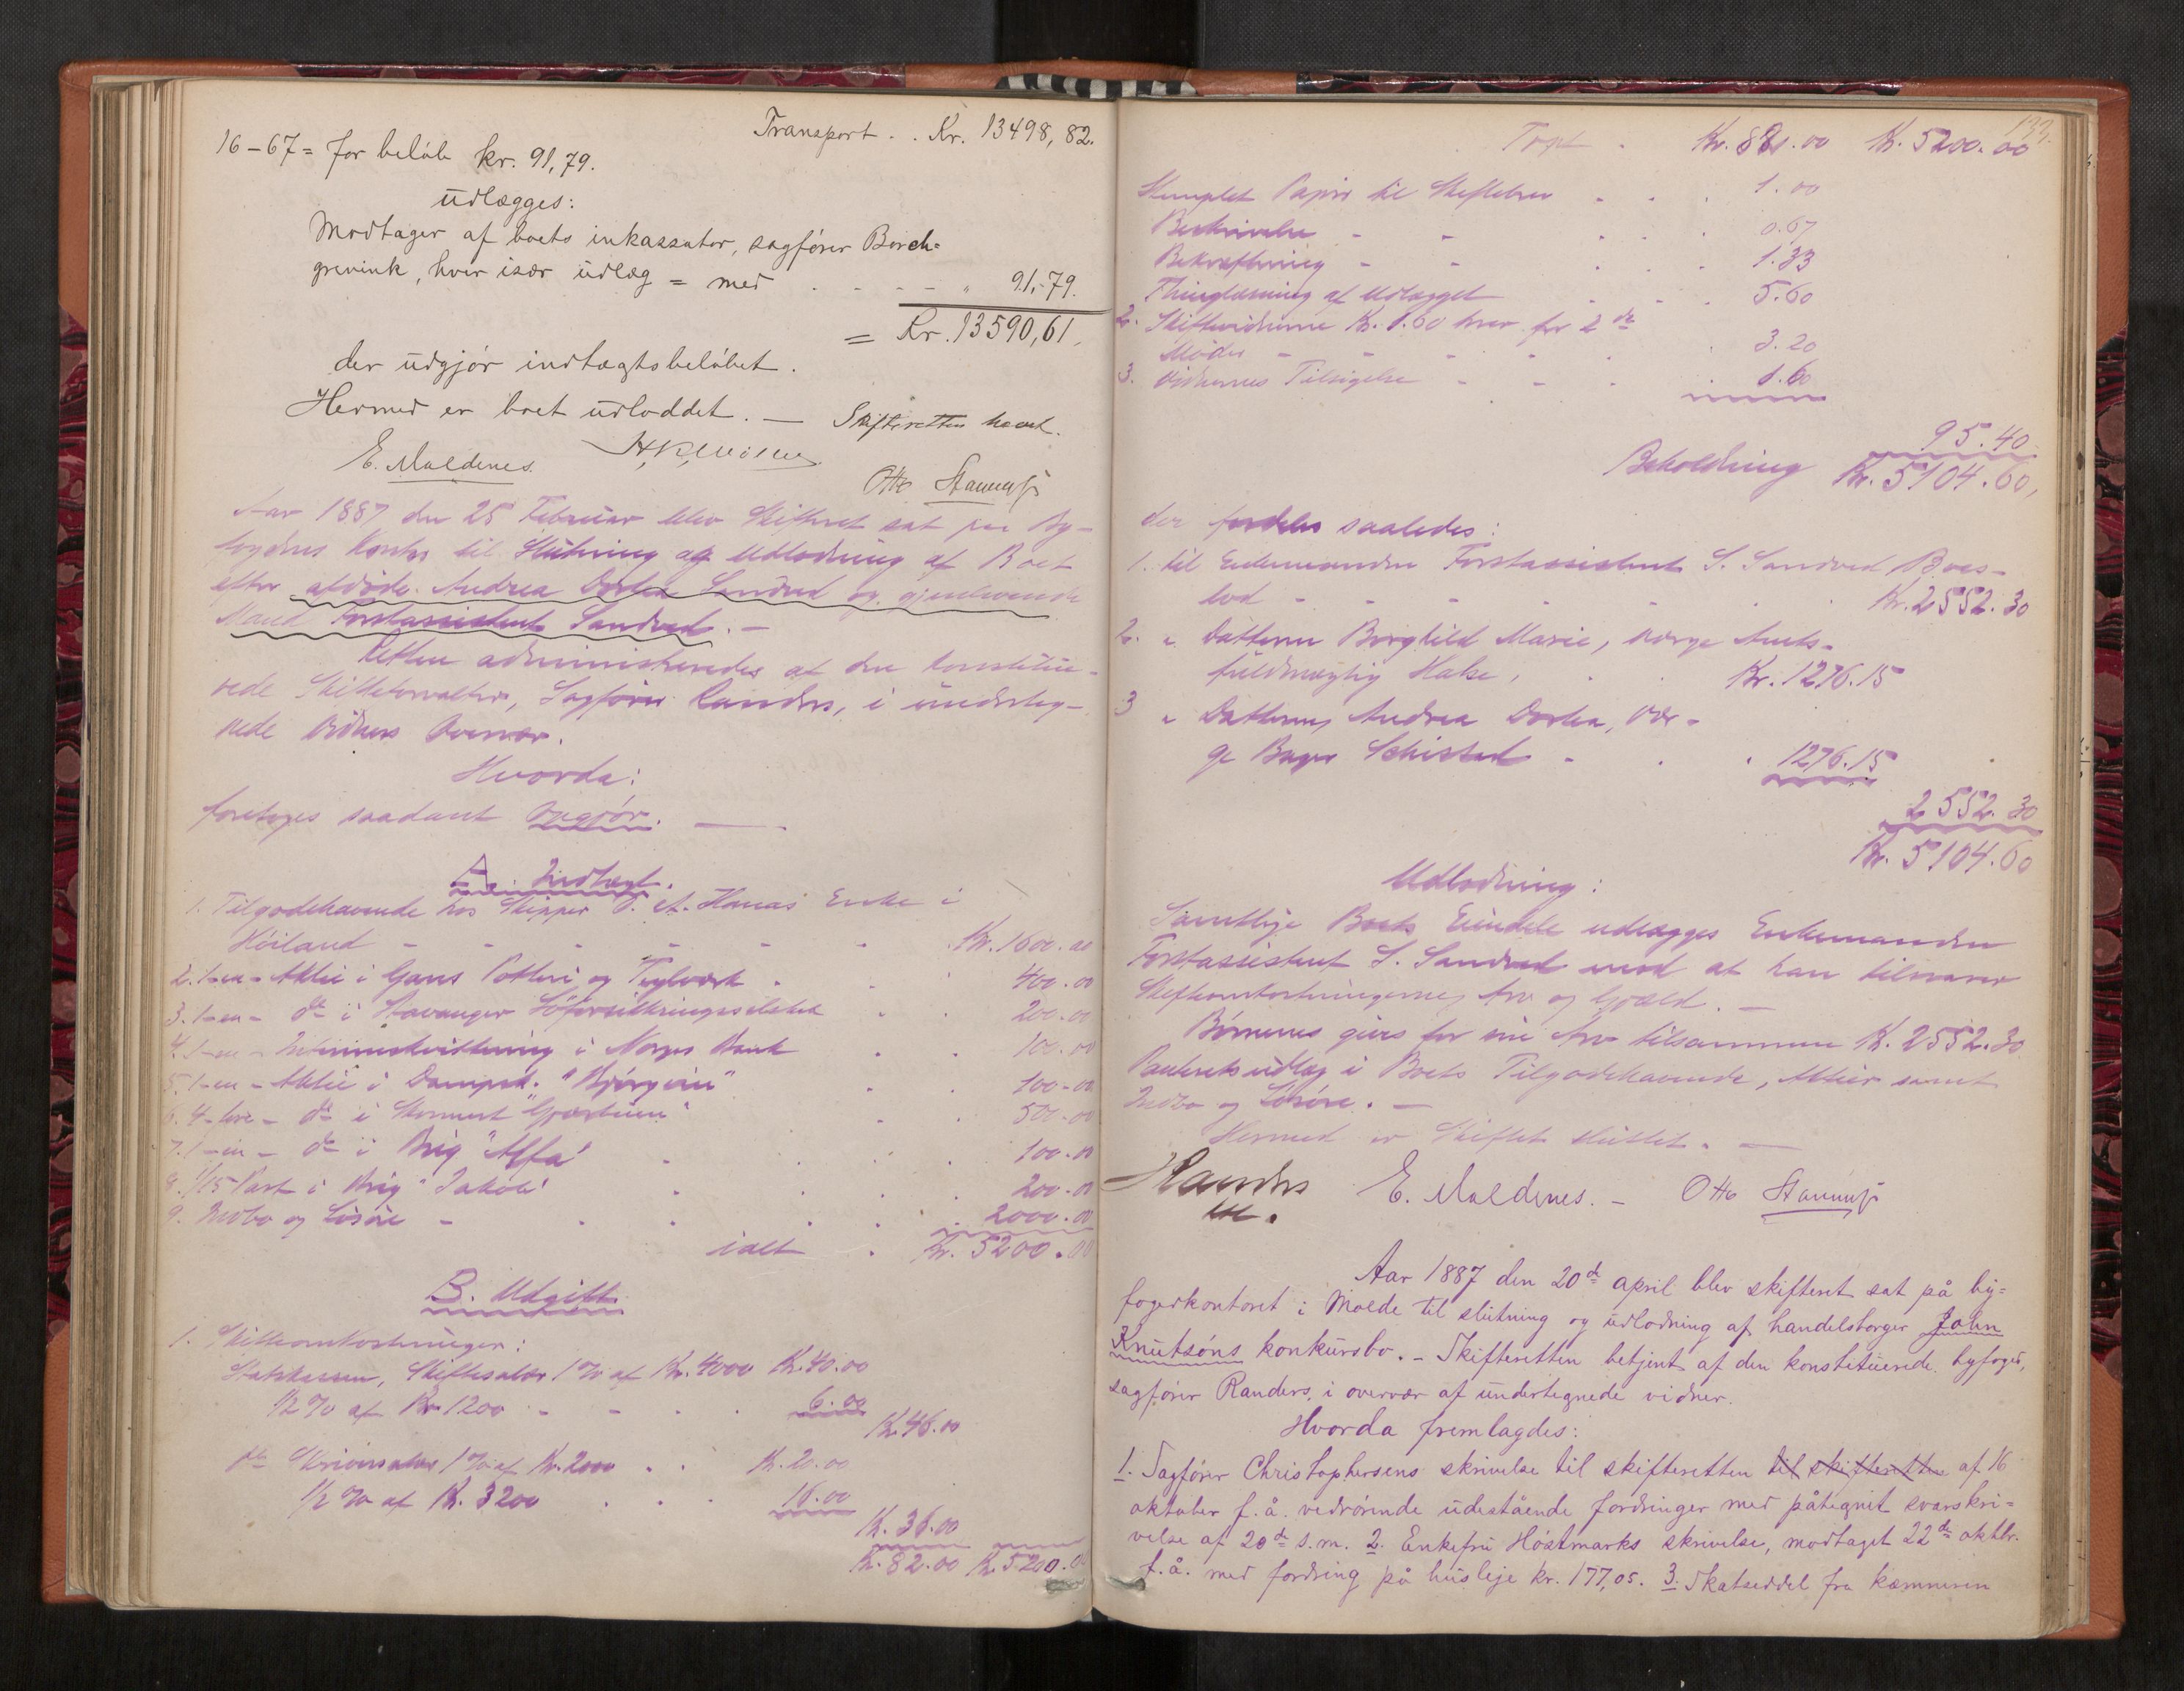 Transport . . Kr. 13498,82.
16-67 = for beløb kr. 91,79.
udlægges:
Modtager af boets inkassator, sagfører Borch=
grevink, hver især udlæg = med . - - - " 91,-79.
= Kr. 13590,61.
der udgjør indtægtsbeløbet.
Hermed er boet udloddet. — Skifteretten hævet.
E. Maldenes.
Otto Stamnæs
Aar 1887 den 25 Februar blev Skifteret sat paa By-
fogdens Kontor til Slutning og Udlodning af Boet
efter afdøde Andrea Dortea Sandved og gjenlevende
Mand Forstassistent Sandved. —
Retten administreredes af den konstitue-
rede Skifteforvalter, Sagfører Randers, i underteg-
nede Vidners Overvær.
Hvorda:
foretoges saadant Opgjør. —
A. Indtægt.
1. Tilgodehavende hos Skipper O. A. Hanas Enke i
Höiland - - - - - - Kr. 1600.00
2. 1-en- Aktie i Gans Potteri og Teglværk . . 400.00
3. 1-en- do i Stavanger Söforsikringsselskab . . 200.00
4. 1-en- Interimskvittering i Norges Bank . . 100.00
5. 1-en- Aktie i Dampsk. "Bjørgvin" . . 100.00
6. 4-fire- do i Skonnert "Gjæstrion" . . 500.00
7. 1-en- do i Brig "Alfa" . . . 100.00
8. 1/15 Part i Brig "Jakob" . . . 200.00
9. Indbo og Lösöre - . . . 2000.00
ialt . Kr. 5200.00
B. Udgift.
1. Skifteomkostninger:
Statskassen, Skiftesalær 1% af Kr. 4000 Kr. 40.00
1/2 % af Kr 1200 - - . . 6.00
Kr. 46.00
do Skriversalær 1% af Kr. 2000 . . Kr. 20.00
1/2 % af Kr. 3200 . . . 16.00
Kr. 36.00
Kr. 82.00 Kr. 5200.00
133.
Tspt . Kr. 82.00 Kr. 5200.00
Stemplet Papir til Skiftebrev . . . 1.00
Beskrivelse - - . . . 0.67
Bekræftning - - . . . 1.33
Thinglæsning af Udlægget . . . 5.60
2. Skiftevidnerne Kr. 1.60 hver for 2de
Møder - - - - . 3.20
3. Vidnernes Tilsigelse - - . 1.60
95.40
Beholdning Kr. 5104.60,
der fordeles saaledes:
1. til Enkemanden Forstassistent S. Sandved Boes-
lod - - - - - . . Kr. 2552.30
2. " Datteren Borghild Marie, Værge Amts-
fuldmægtig Halse, . . Kr. 1276.15
3 " Datteren Andrea Dortea, Vær-
ge Bager Schistad - . . 1276.15
2552.30
Kr. 5104.60
Udlodning:
Samtlige Boets Eiendele udlægges Enkemanden
Forstassistent S. Sandved mod at han tilsvarer
Skifteomkostningerne, Arv og Gjæld. —
Børnenes gives for sin Arv tilsammen Kr. 2552.30
Panteretsudlæg i Boets Tilgodehavende, Aktier samt
Indbo og Lösöre. —
Hermed er Skiftet sluttet. —
Randers
E. Maldenes. - Otto Stamnæs
Aar 1887 den 20de april blev skifteret sat på by=
fogedkontoret i Molde til slutning og udlodning af handelsborger John
Knutsøns konkursbo. - Skifteretten betjent af den konstituerede byfoged,
sagfører Randers, i overvær af undertegnede vidner.
Hvorda fremlagdes:
1. Sagfører Christophersens skrivelse til skifteretten til skifteretten af 16
oktober f. å. vedrørende udestående fordringer med påtegnet svarskri=
velse af 20de s. m. 2. Enkefru Høstmarks skrivelse, modtaget 22de oktbr.
f. å. med fordring på husleje kr. 177,05. 3. Skatseddel fra kæmneren